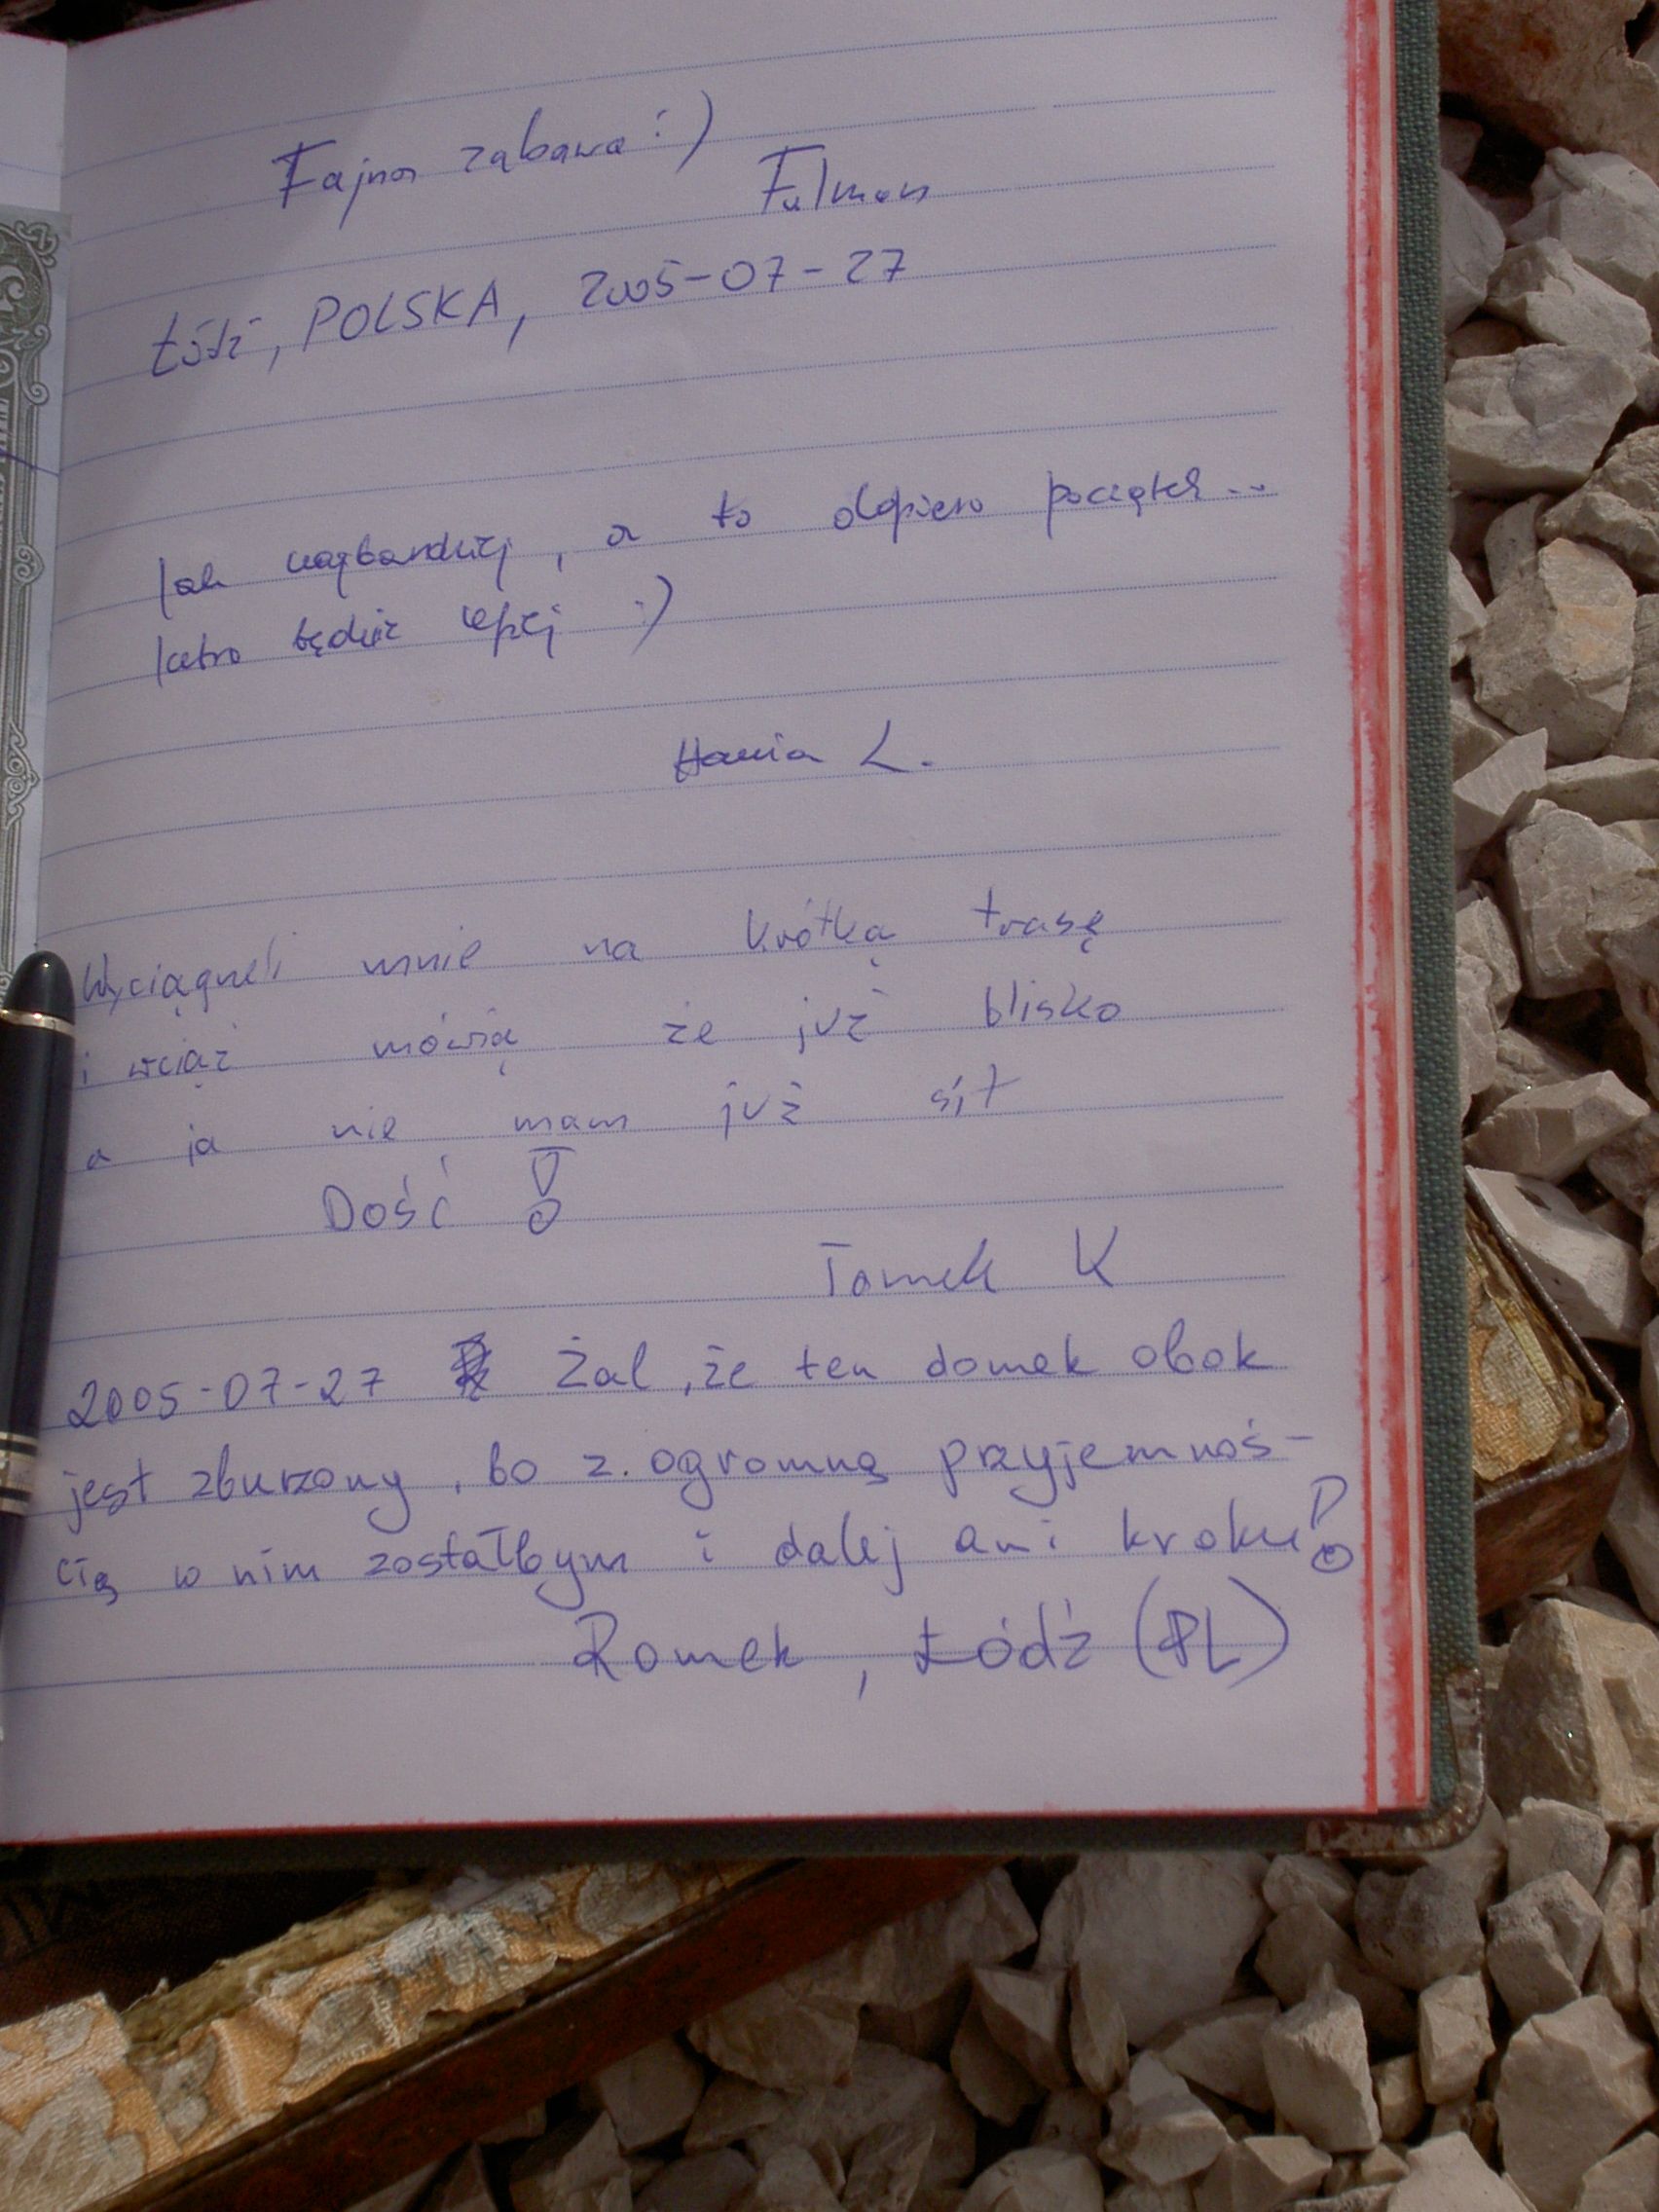 Fajna zabawa :)
Fulman
Łódź, POLSKA, 2005-07-27
Jak najbardziej, a to dopiero początek...
Jutro będzie lepiej :)
Hania L.
Wyciągneli mnie na krótką trasę
i wciąż mówią że już blisko
a ja nie mam już sił
Dość !
Tomek K
2005-07-27 Żal, że ten domek obok
jest zburzony, bo z ogromną przyjemnoś-
cią w nim zostałbym i dalej ani kroku!
Romek, Łódź (PL)